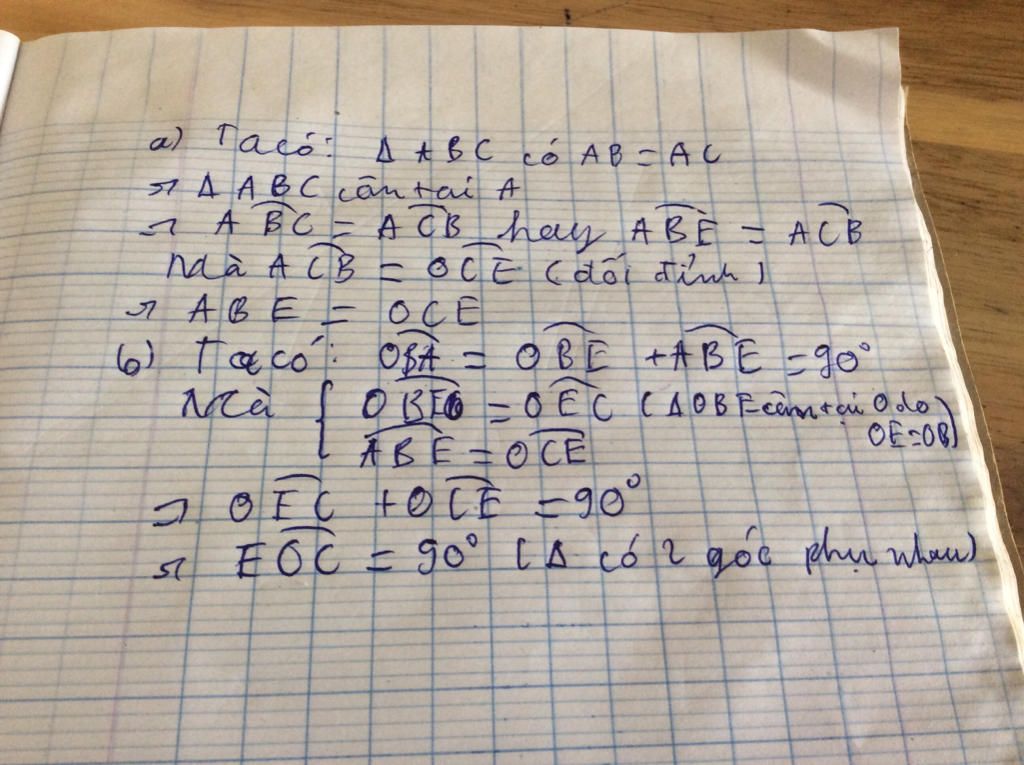 a) Ta có: Δ ABC có AB = AC
⇒ Δ ABC cân tại A
⇒ A͡BC = A͡CB hay A͡BE = A͡CB
Mà A͡CB = O͡CE (đối đỉnh)
⇒ ABE = OCE
b) Ta có: O͡BA = O͡BE + A͡BE = 90°
Mà { O͡BE = O͡EC (Δ OBE cân tại O do OE=OB)
A͡BE = O͡CE
⇒ O͡EC + O͡CE = 90°
⇒ E͡OC = 90° (Δ có 2 góc phụ nhau)